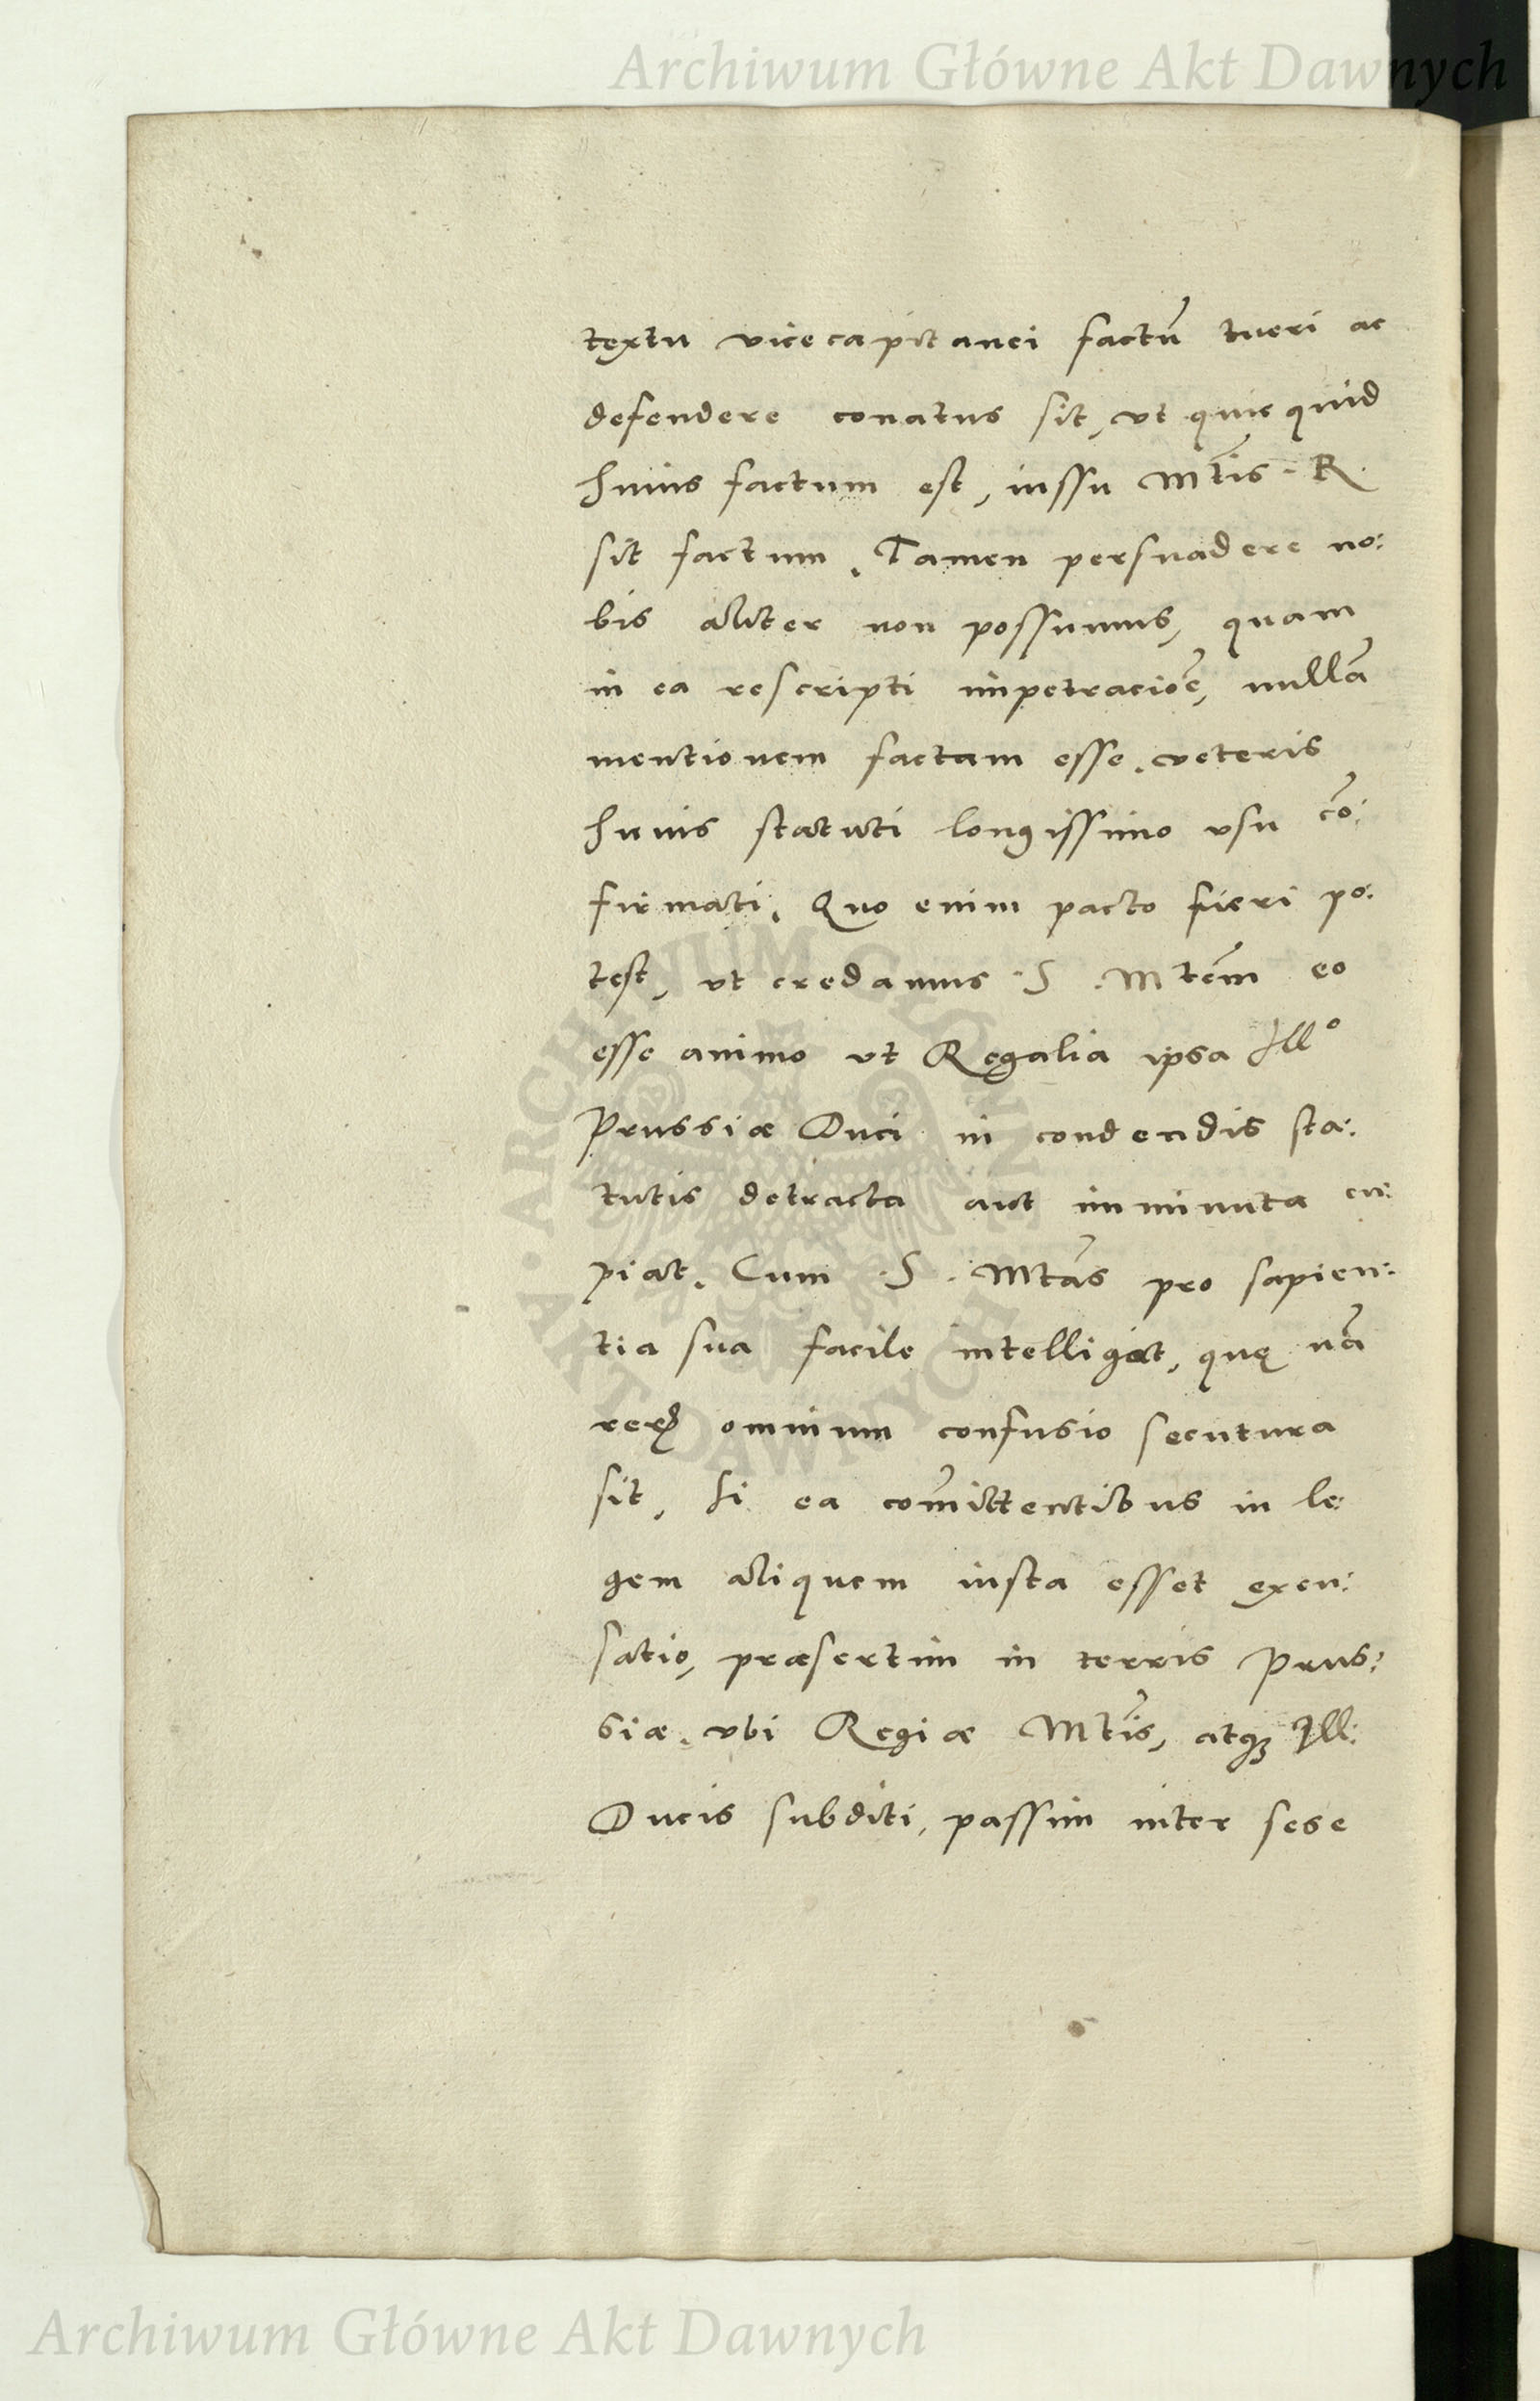 Archiwum Główne Akt Dawnych
textu vicecapitanei factū tueri ac
defendere conatus sit, vt quicquid
huius factum est, iussu Mt̄is · R
sit factum, Tamen persuadere no:
bis aliter non possumus, quam
in ea rescripti impetraciōe, nullā
mentionem factam esse, veteris
huius statuti longissimo vsu cō:
firmati, Quo enim pacto fieri po:
test, vt credamus · S · Mtēm eo
esse animo vt Regalia ipsa Illº
Prussiæ Duci in condendis sta:
tutis detracta aut imminuta cu:
piat, Cum · S · Mtās pro sapien:
tia sua facile intelligat, quę nā
rerꝝ omnium confusio secutura
sit, si ea com̄ittentibus in le:
gem aliquem iusta esset excu:
satio, præsertim in terris Prus:
siæ, vbi Regiæ Mt̄is, atqꝫ Ill:
Ducis subditi, passim inter sese
ARCHIVUM
AKT DAWNYCH
Archiwum Główne Akt Dawnych